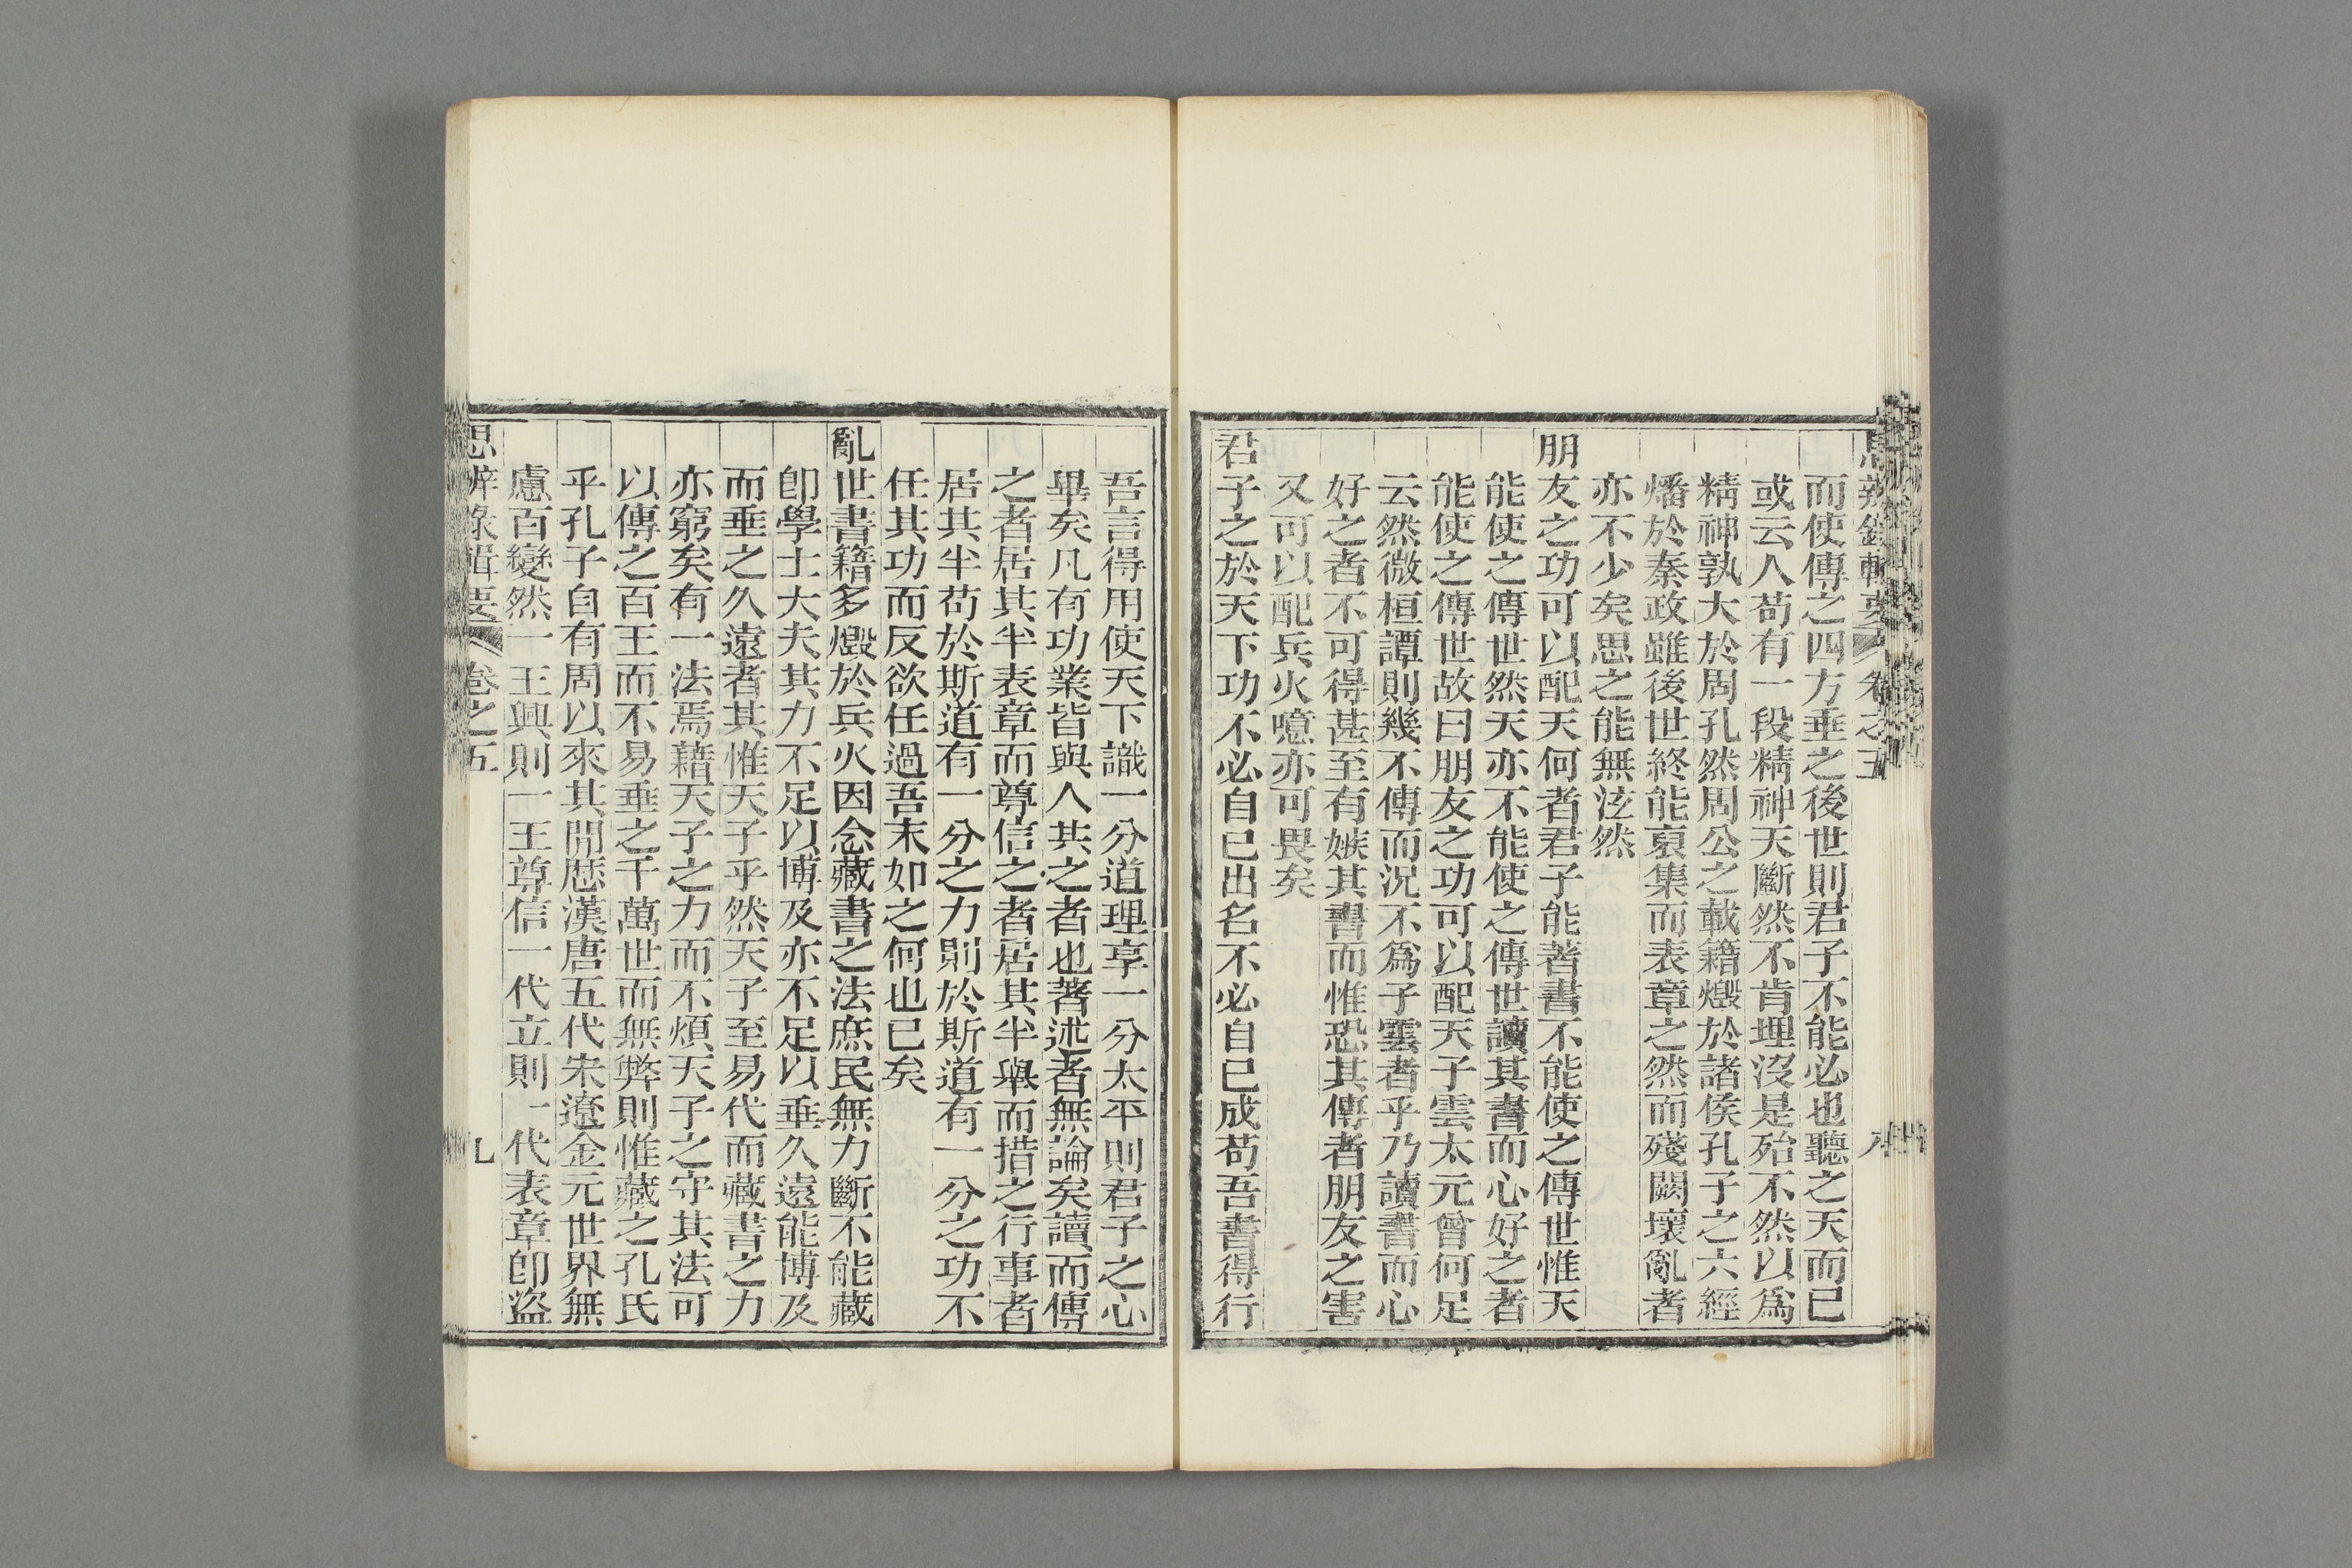 思辨錄輯要 卷之五 八
而使傳之四方垂之後世則君子不能必也聽之天而已
或云人苟有一段精神天斷然不肯埋沒是殆不然以爲
精神孰大於周孔然周公之載籍燬於諸侯孔子之六經
燔於秦政雖後世終能裒集而表章之然而殘闕壞亂者
亦不少矣思之能無泫然
朋友之功可以配天何者君子能著書不能使之傳世惟天
能使之傳世然天亦不能使之傳世讀其書而心好之者
能使之傳世故曰朋友之功可以配天子雲太元曾何足
云然微桓譚則幾不傳而況不爲子雲者乎乃讀書而心
好之者不可得甚至有嫉其書而惟恐其傳者朋友之害
又可以配兵火噫亦可畏矣
君子之於天下功不必自已出名不必自已成苟吾書得行
吾言得用使天下識一分道理享一分太平則君子之心
畢矣凡有功業皆與人共之者也著述者無論矣讀而傳
之者居其半表章而尊信之者居其半舉而措之行事者
居其半苟於斯道有一分之力則於斯道有一分之功不
任其功而反欲任過吾末如之何也已矣
亂世書籍多燬於兵火因念藏書之法庶民無力斷不能藏
卽學士大夫其力不足以博及亦不足以垂久遠能博及
而垂之久遠者其惟天子乎然天子至易代而藏書之力
亦窮矣有一法焉藉天子之力而不煩天子之守其法可
以傳之百王而不易垂之千萬世而無弊則惟藏之孔氏
乎孔子自有周以來其閒歷漢唐五代宋遼金元世界無
慮百變然一王興則一王尊信一代立則一代表章卽盜
思辨錄輯要 卷之五 九